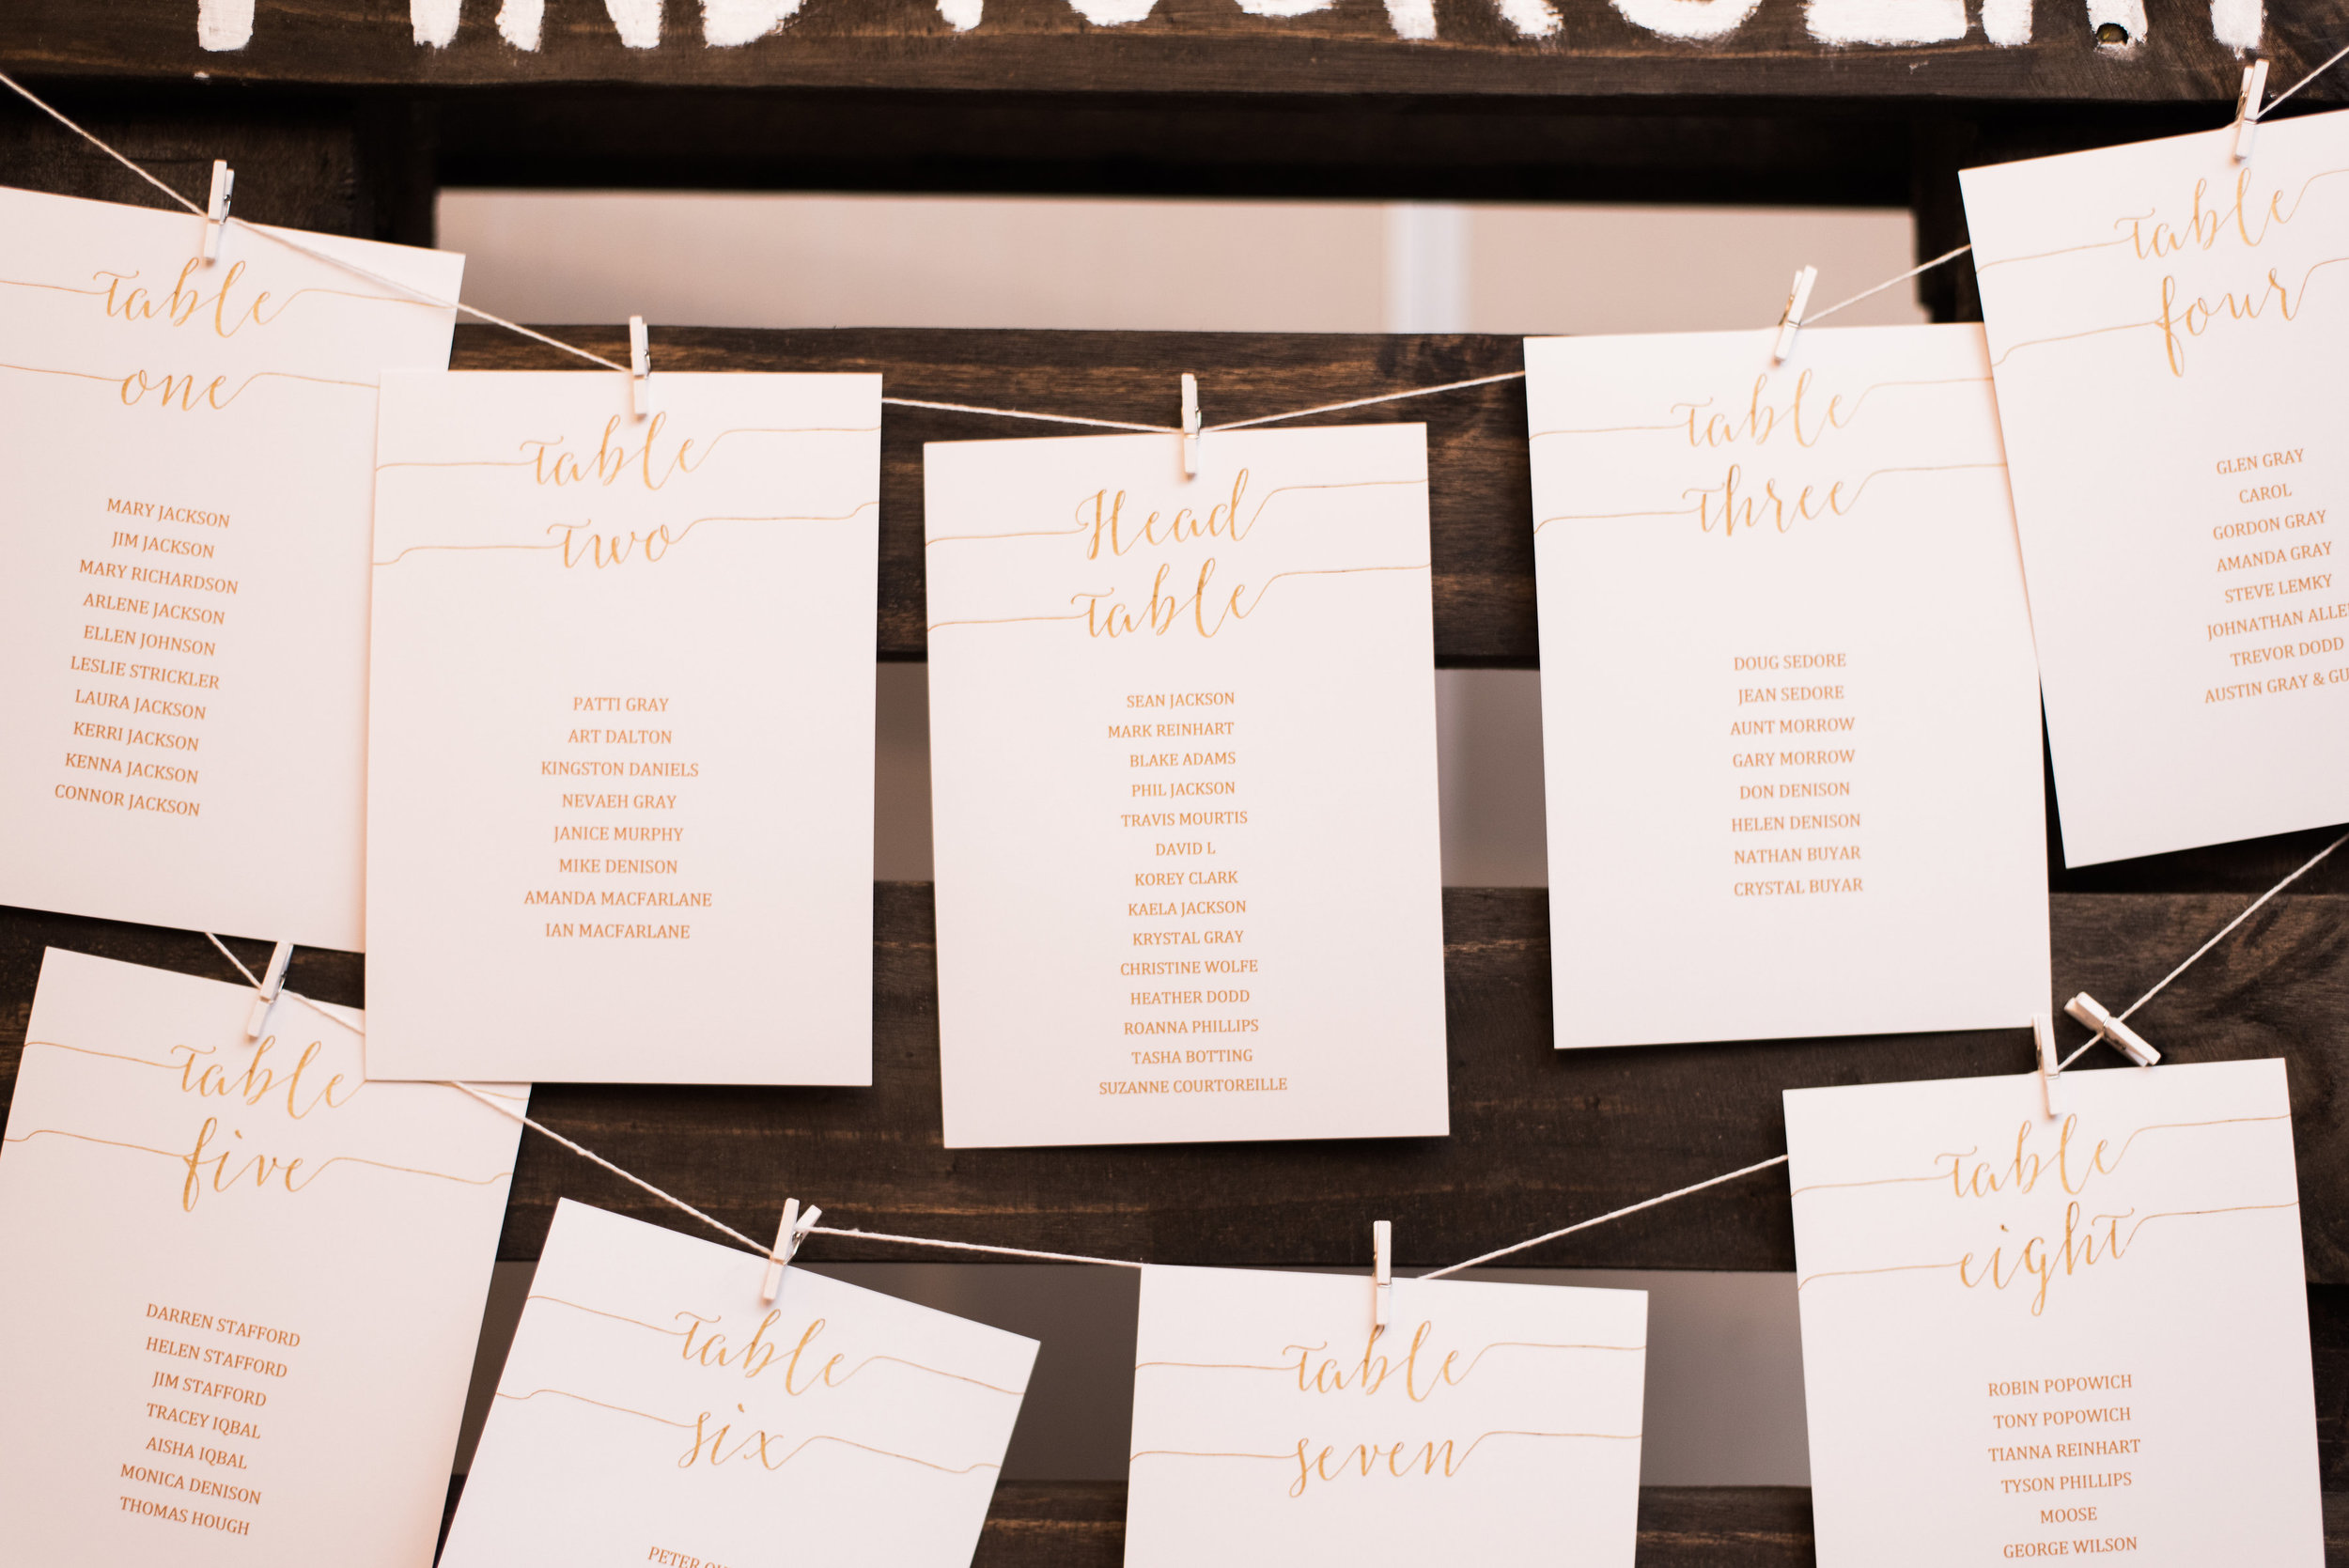 Table
one
MARY JACKSON
JIM JACKSON
MARY RICHARDSON
ARLENE JACKSON
ELLEN JOHNSON
LESLIE STRICKLER
LAURA JACKSON
KERRI JACKSON
KENNA JACKSON
CONNOR JACKSON
Table
Two
PATTI GRAY
ART DALTON
KINGSTON DANIELS
NEVAEH GRAY
JANICE MURPHY
MIKE DENISON
AMANDA MACFARLANE
IAN MACFARLANE
Head
Table
SEAN JACKSON
MARK REINHART
BLAKE ADAMS
PHIL JACKSON
TRAVIS MOURTIS
DAVID L
KOREY CLARK
KAELA JACKSON
KRYSTAL GRAY
CHRISTINE WOLFE
HEATHER DODD
ROANNA PHILLIPS
TASHA BOTTING
SUZANNE COURTOREILLE
Table
Three
DOUG SEDORE
JEAN SEDORE
AUNT MORROW
GARY MORROW
DON DENISON
HELEN DENISON
NATHAN BUYAR
CRYSTAL BUYAR
Table
four
GLEN GRAY
CAROL
GORDON GRAY
AMANDA GRAY
STEVE LEMKY
JOHNATHAN
TREVOR DODD
AUSTIN GRAY &
Table
five
DARREN STAFFORD
HELEN STAFFORD
JIM STAFFORD
TRACEY IQBAL
AISHA IQBAL
MONICA DENISON
THOMAS HOUGH
Table
six
PETER
Table
seven
Table
eight
ROBIN POPOWICH
TONY POPOWICH
TIANNA REINHART
TYSON PHILLIPS
MOOSE
GEORGE WILSON